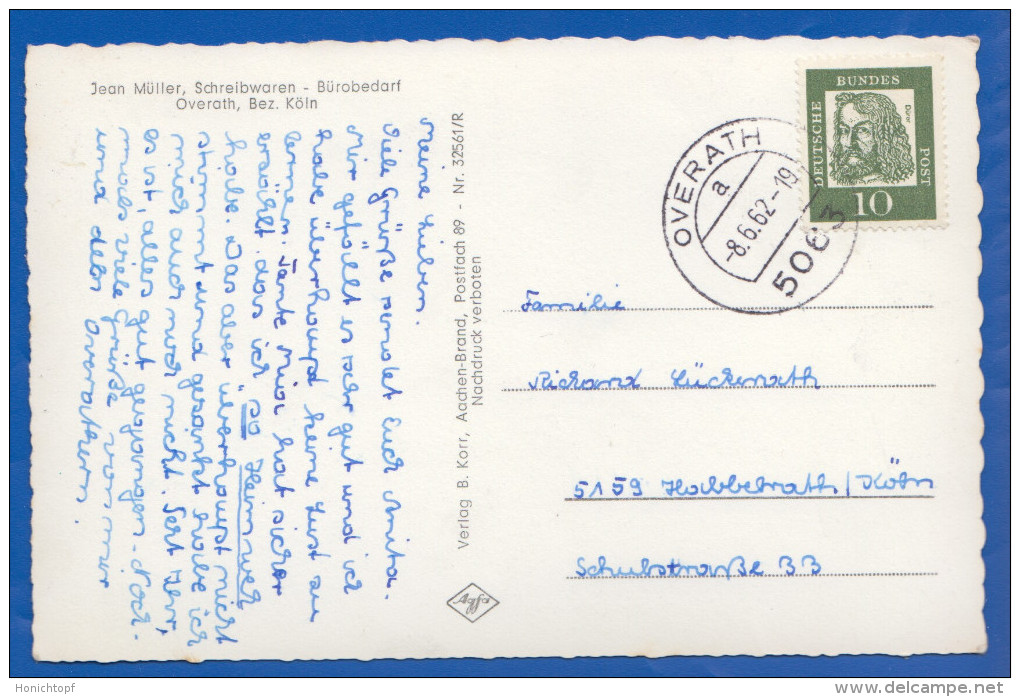 Jean Müller, Schreibwaren - Bürobedarf
Overath, Bez. Köln
Meine Lieben.
Viele Grüße sendet Euch Anita.
Mir gefällt es sehr gut und ich
habe überhaupt keine Lust zu
lernen. Tante Mia hat sicher
erzählt das ich so Heimweh
hätte. Das aber überhaupt nicht
stimmt und gesagt habe ich
mich auch noch nicht. Seit Ihr,
es ist, alles gut gegangen. Noch-
mals viele Grüße von mir
und den Overathern.
Verlag B. Korr, Aachen-Brand, Postfach 89 - Nr. 32561/R
Nachdruck verboten
Agfa
OVERATH
a
-8.6.62-19
5063
DEUTSCHE
BUNDES
POST
Dürer
10
Familie
Richard Lückerath
5159 Habbelrath/Köln
Schulstraße 33
Honichtopf
www.delcampe.net